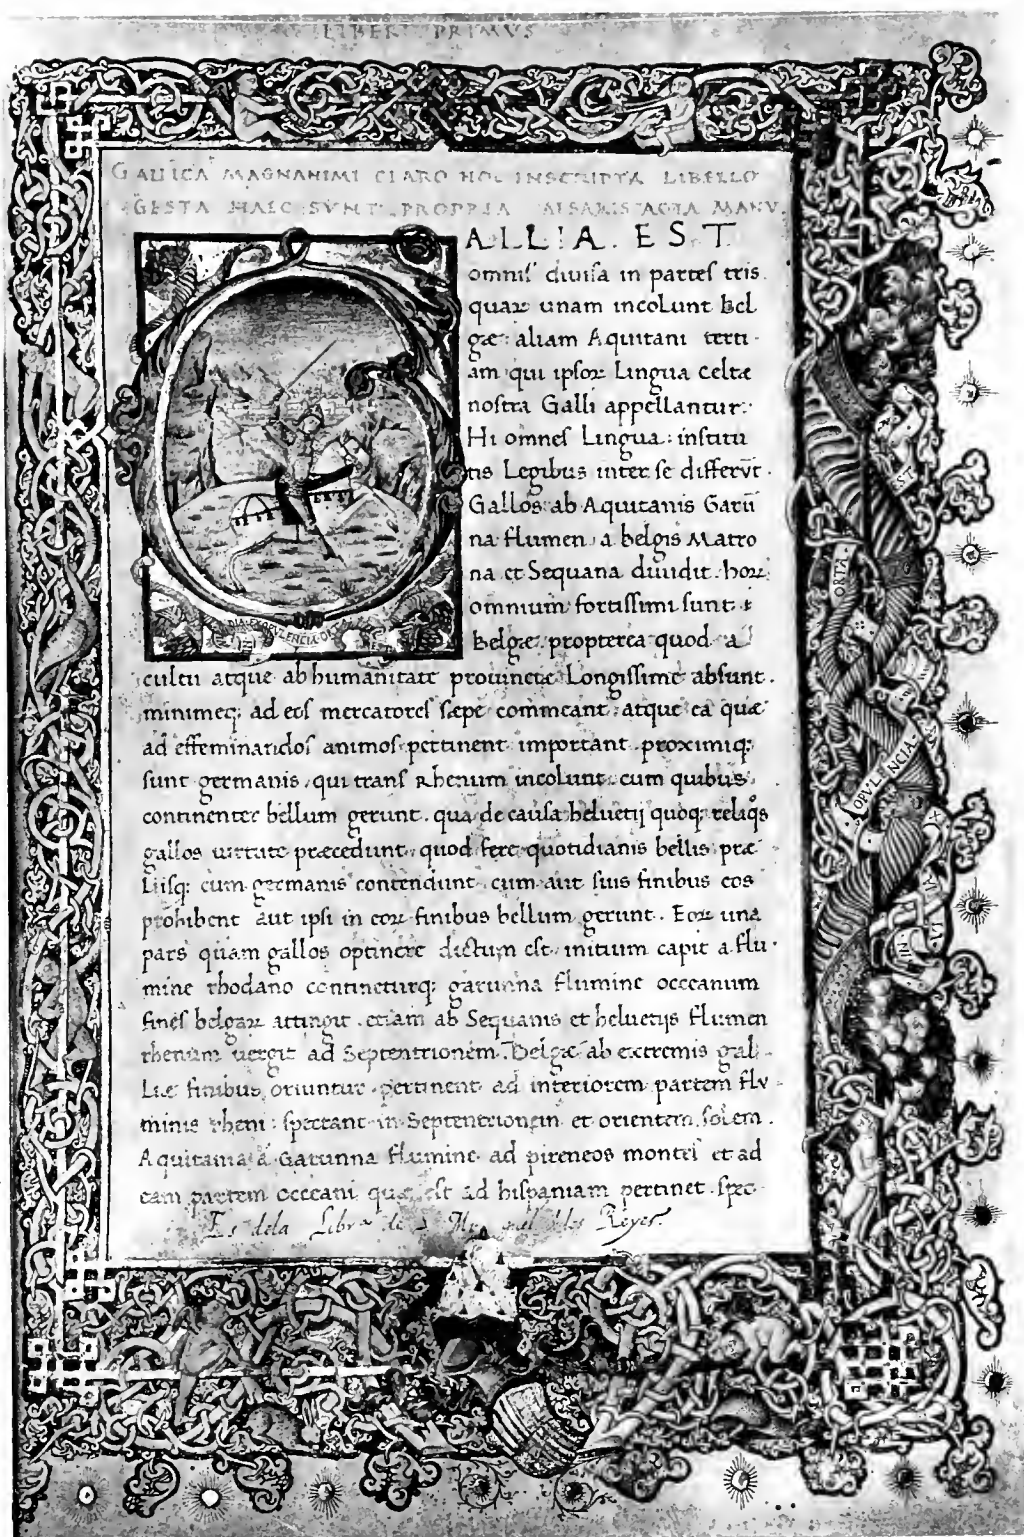 LIBER PRIMVS
GALLICA MAGNANIMI CLARO HOC INSCRIPTA LIBELLO
GESTA HAEC SVNT PROPRIA CAESARIS ACTA MANV
ALLIA. EST
omnis diuisa in partes tris
quaꝝ unam incolunt Bel
gæ: aliam Aquitani terti
am qui ipsoꝝ Lingua celtæ
nostra Galli appellantur:
Hi omnes Lingua: institu
tis Legibus inter se differūt.
Gallos ab Aquitanis Garū
na flumen, a belgis Matro
na et Sequana diuidit. hoꝝ
omnium fortissimi sunt
Belgæ propterea quod a
cultu atque ab humanitate prouinciæ Longissime absunt.
minimeq; ad eos mercatores sæpe commeant: atque ea quæ
ad effeminandos animos pertinent important proximiq;
sunt germanis, qui trans Rhenum incolunt: cum quibus
continenter bellum gerunt. qua de causa heluetij quoq; reliqͦs
gallos uirtute præcedunt, quod fere quotidianis bellis præ
Liisq: cum germanis contendunt. cum aut suis finibus eos
prohibent aut ipsi in eoꝝ finibus bellum gerunt. Eoꝝ una
pars quam gallos optinere dictum est. initium capit a flu.
mine rhodano contineturq; garunna flumine occeanum
fines belgaꝝ attingit. etiam ab Sequanis et heluetijs flumen
rhenum uergit ad Septentrionem. Belgæ ab extremis gal.
Liæ finibus oriuntur. pertinent ad interiorem partem flu
minis rheni: spectant in Septentrionem et orientem solem.
Aquitania a Garunna flumine ad pireneos montes et ad
eam partem occeani quæ est ad hispaniam pertinet. spec
Es dela Libr de Mi guel delos Reyes.
EST
ORTA
OPVLENCIA